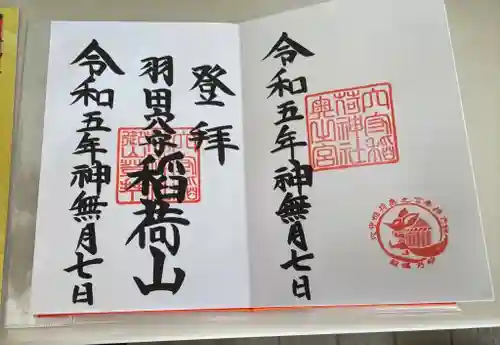 登拝
羽田穴守稲荷山
令和五年神無月七日
令和五年神無月七日
穴守稲
荷神社
奥山宮